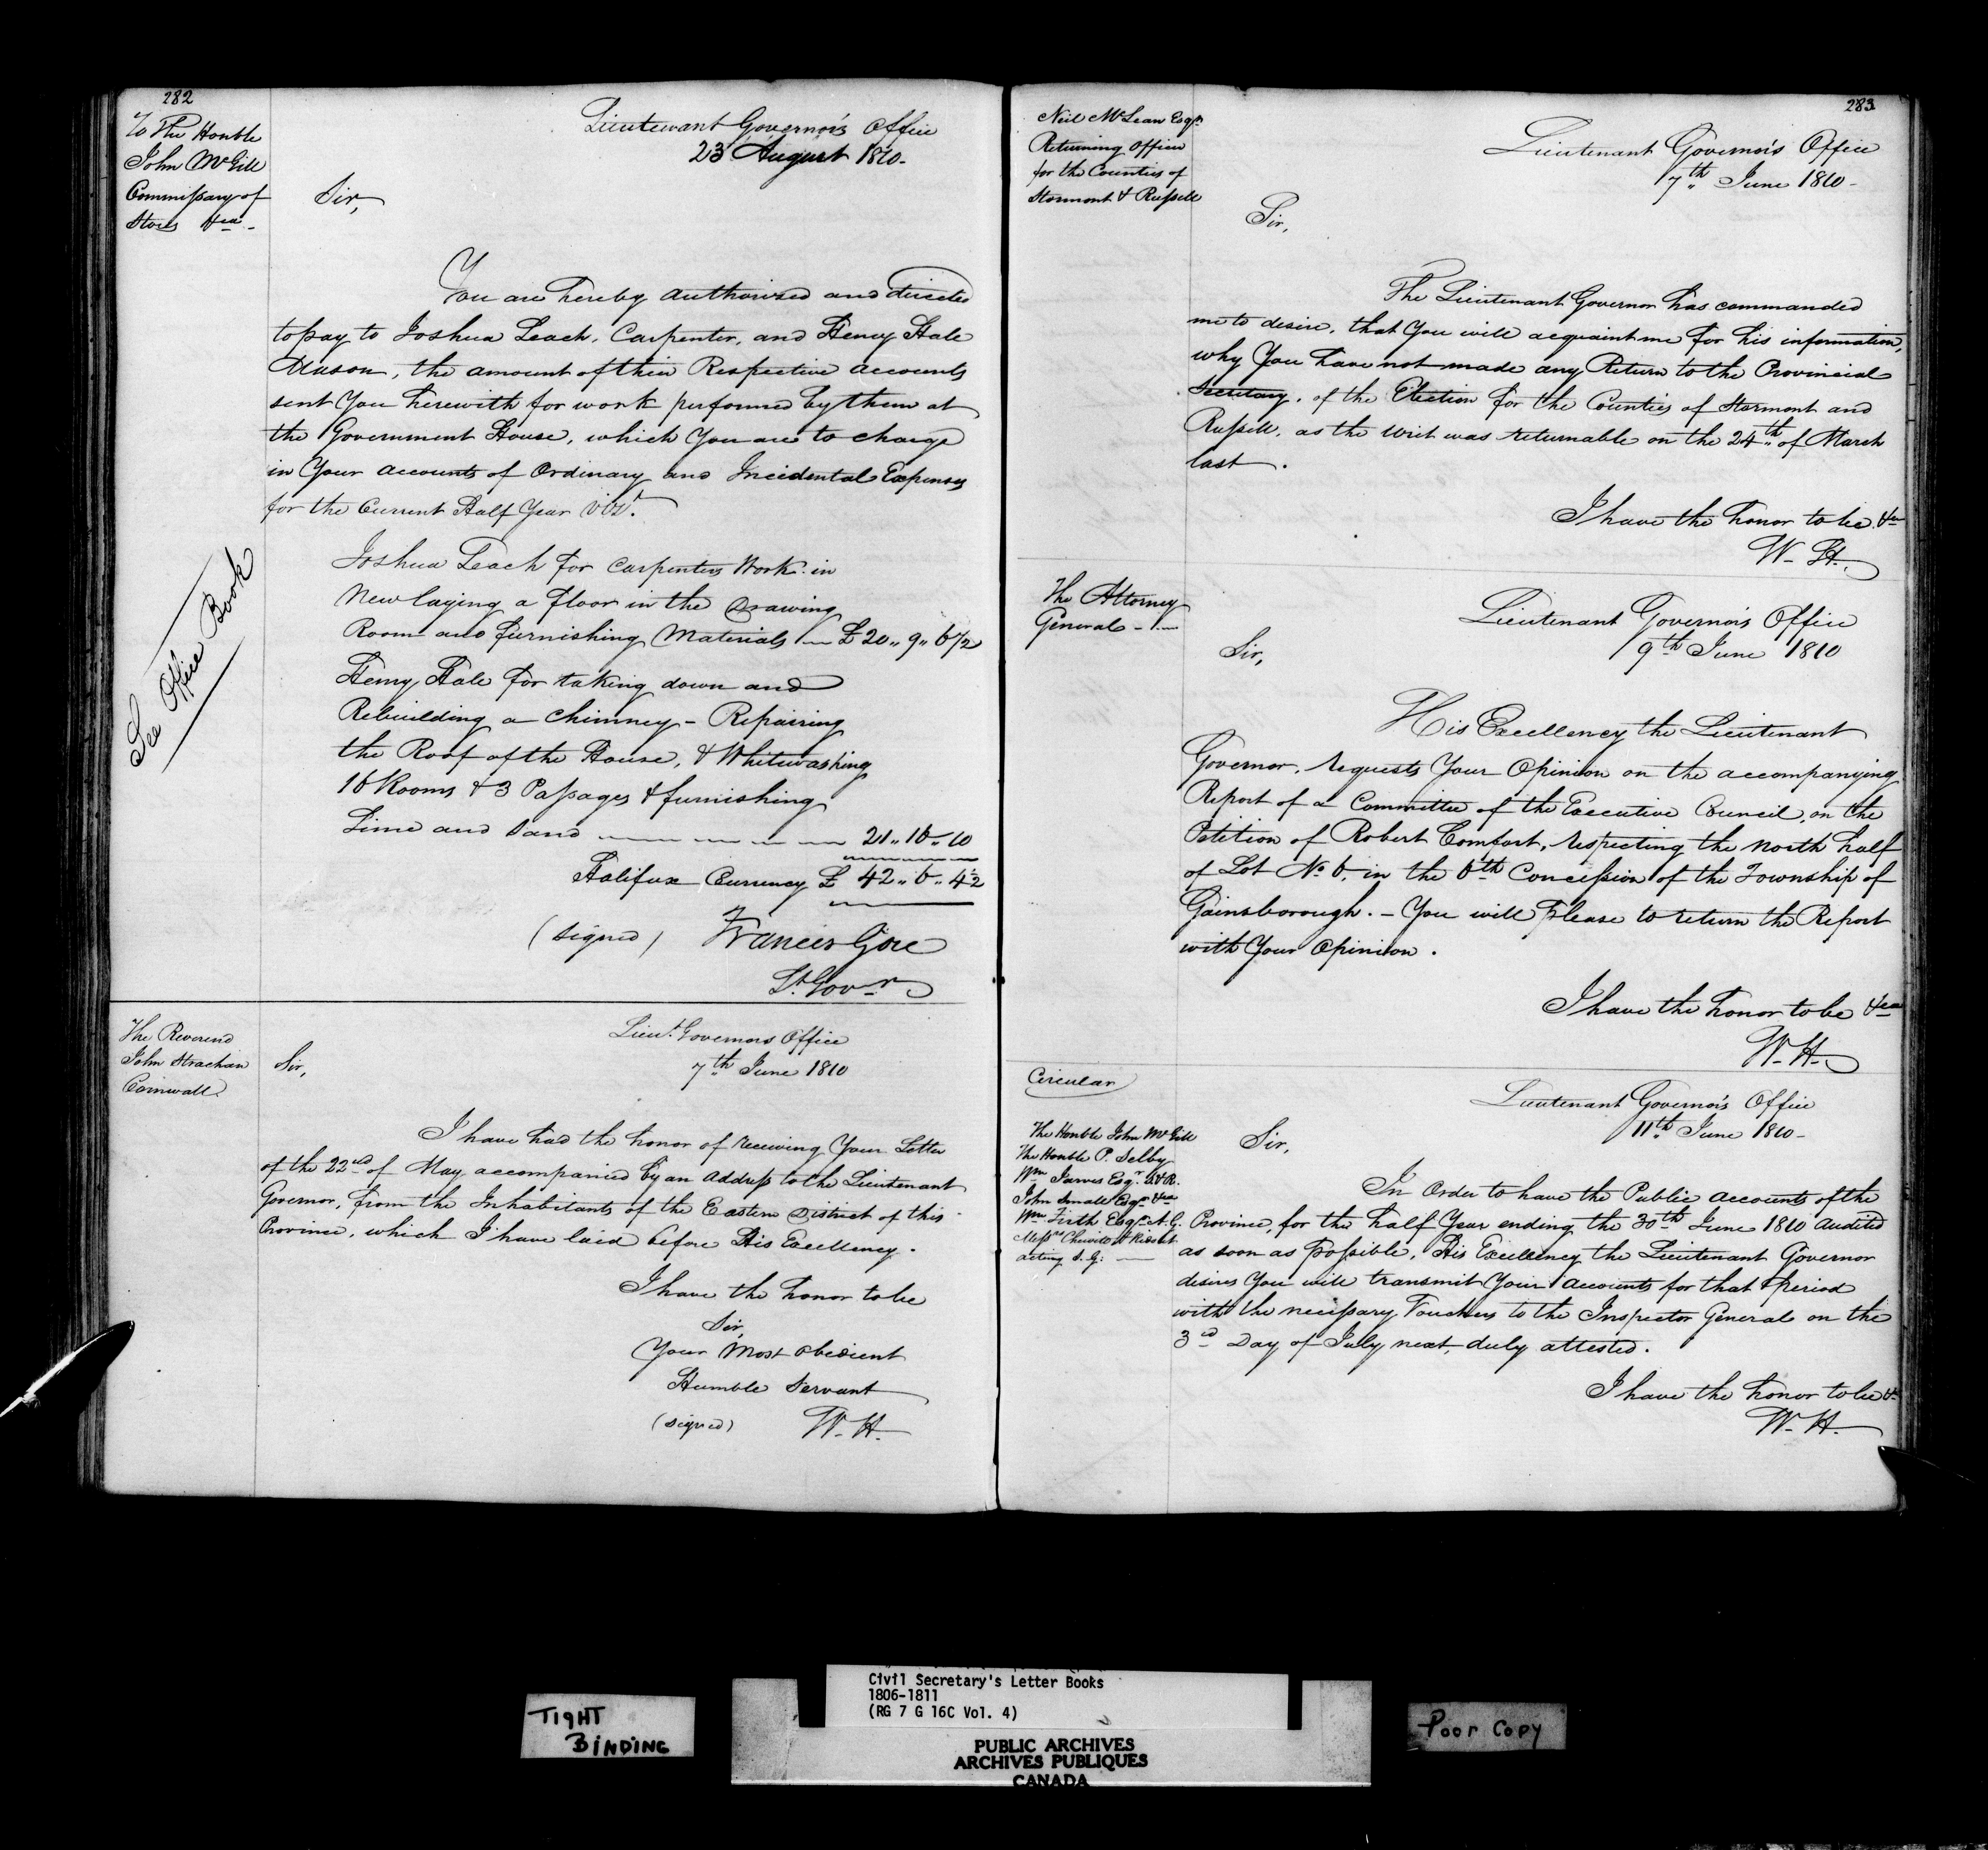 282
To The Honble
John McGill
Commissary of
Stores &ca -
Lieutenant Governor's Office
23 August 1810.
Sir,
You are hereby Authorised and directed
to pay to Joshua Leach, Carpenter, and Henry Hale
Mason, the amount of their Respective accounts
sent You herewith for work performed by them at
the Government House, which You are to charge
in Your accounts of Ordinary and Incidental Expenses
for the Current Half Year vizt.
See Office Book
Joshua Leach for Carpenters Work in
New laying a floor in the Drawing
Room and furnishing Materials — £ 20,, 9,, 6 1/2
Henry Hale for taking down and
Rebuilding a Chimney - Repairing
the Roof of the House, & Whitewashing
16 Rooms & 3 Passages & furnishing
Lime and Sand — — — — — 21,, 16,, 10
Halifax Currency £ 42,, 6,, 4 1/2
(signed) Francis Gore
Lt. Govr.
The Reverend
John Strachan
Cornwall.
Lieut. Governors Office
7th June 1810
Sir,
I have had the honor of receiving Your Letter
of the 22nd of May accompanied by an Address to the Lieutenant
Governor, from the Inhabitants of the Eastern District of this
Province, which I have laid before His Excellency.
I have the honor to be
Sir,
Your Most obedient
Humble Servant
(signed) W. H.
283
Neil McLean Esqr.
Returning Officer
for the Counties of
Stormont & Russell
Lieutenant Governor's Office
7th June 1810-
Sir,
The Lieutenant Governor has commanded
me to desire, that You will acquaint me for his information,
why You have not made any Return to the Provincial
Secretary, of the Election for the Counties of Stormont and
Russell, as the Writ was returnable on the 24th of March
last.
I have the honor to be &ca
W. H.
The Attorney
General - —
Lieutenant Governor's Office
9th June 1810
Sir,
His Excellency the Lieutenant
Governor, requests Your Opinion on the accompanying
Report of a Committee of the Executive Council, on the
Petition of Robert Comfort, respecting the North half
of Lot No 6, in the 6th Concession of the Township of
Gainsborough. - You will Please to return the Report
with Your Opinion.
I have the honor to be &ca
W. H.
Circular
The Honble John McGill
The Honble P. Selby
Wm Jarvis Esqr. S&R.
John Small Esqr &ca
Wm Firth Esqr A. G.
Messrs Chewett & Ridout
acting S. G: —
Lieutenant Governor's Office
11th June 1810-
Sir,
In Order to have the Public Accounts of the
Province, for the half Year ending the 30th June 1810 Audited
as soon as possible, His Excellency the Lieutenant Governor
desires You will transmit Your Accounts for that period
with the necessary Vouchers to the Inspector General on the
3rd Day of July next, duly attested.
I have the honor to be &c
W. H.
TIGHT
BINDING
Civil Secretary's Letter Books
1806-1811
(RG 7 G 16C Vol. 4)
PUBLIC ARCHIVES
ARCHIVES PUBLIQUES
CANADA
Poor Copy